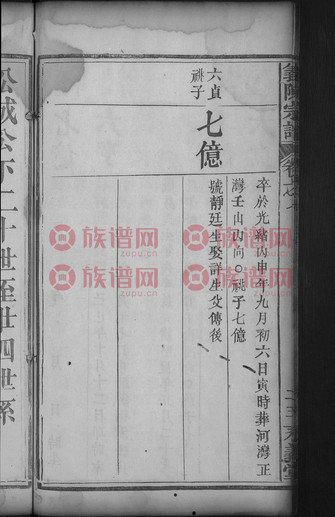 卒於光緒丙申年九月初六日寅時葬河灣正
灣壬山丙向○祧子七億
六貞
祧子
七億
號靜廷生娶詳生父傳後
松茂公下二十世至廿四世系
族谱网
zupu.cn
族谱网
zupu.cn
族谱网
zupu.cn
族谱网
zupu.cn